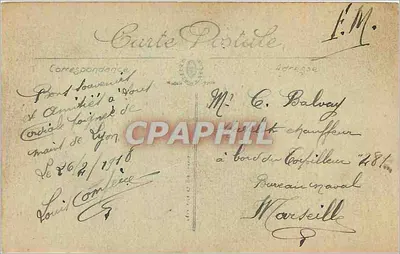 F.M.
Carte Postale
Correspondance
Adresse
Bons souvenirs
et Amitiés à vous
Cordiale poignée de
main de Lyon
Le 26/2/1916
Louis
Mr C. Balvay
chauffeur
à bord du Torpilleur 28
Bureau naval
Marseille
CPAPHIL